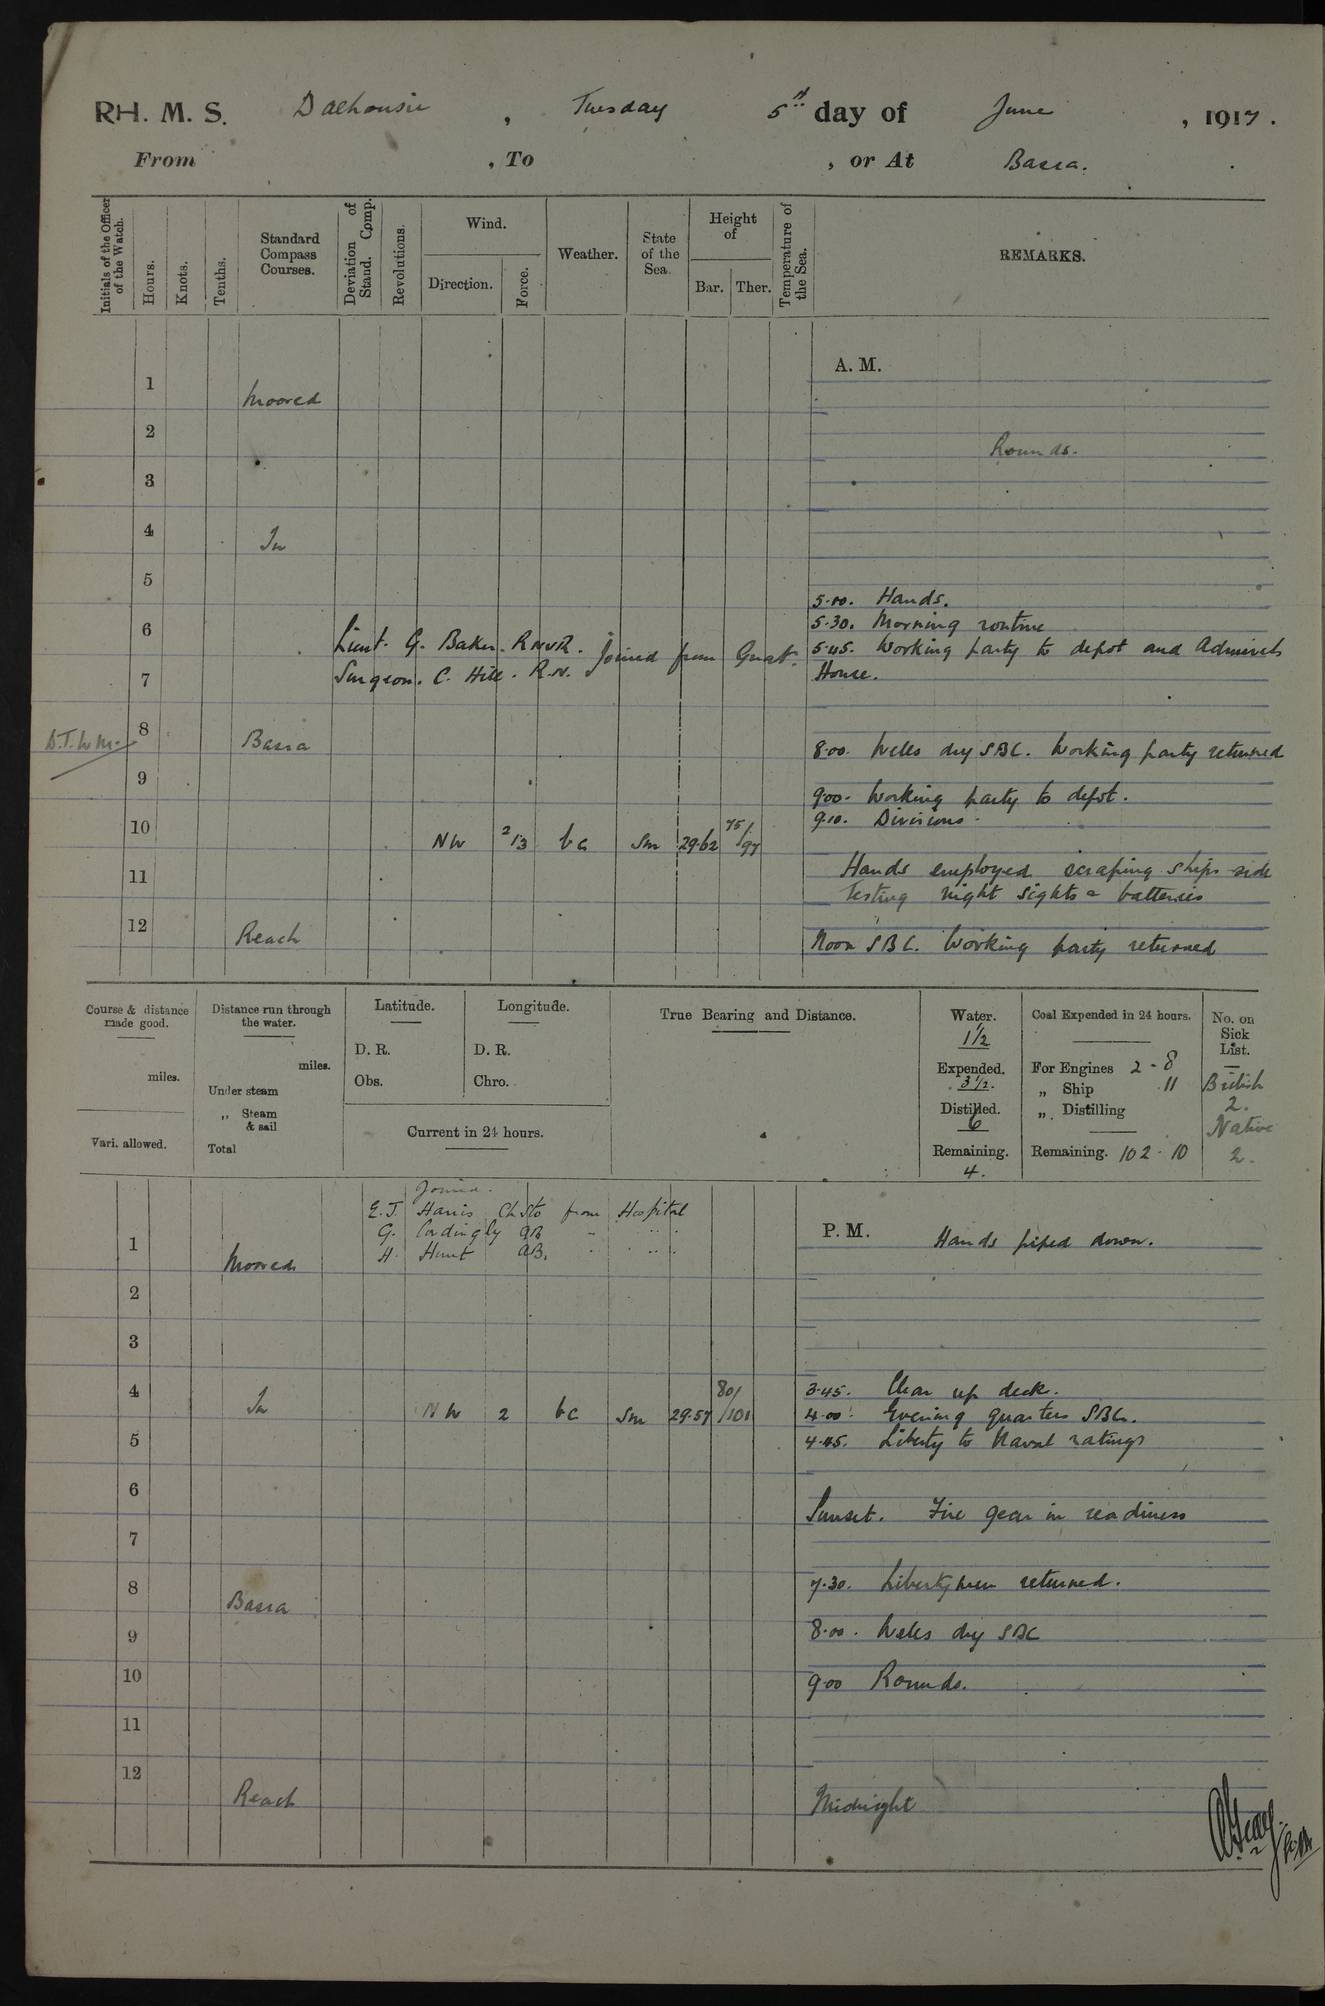 RH. M. S. Dalhousie, Tuesday 5th day of June, 1917.
From , To , or At Basra.
Initials of the Officer of the Watch.
Hours.
Knots.
Tenths.
Standard Compass Courses.
Deviation of Stand. Comp.
Revolutions.
Wind.
Direction.
Force.
Weather.
State of the Sea.
Height of
Bar. Ther.
Temperature of the Sea.
REMARKS.
A. M.
1
Moored
2
Rounds.
3
4
In
5
5.00. Hands.
6
5.30. Morning routine
Lieut. G. Baker. RNVR.
Surgeon. C. Hill. R.N.
Joined from Gnat.
5.45. Working party to depot and Admirals
7
House.
D.T.W.M.
8
Basra
8.00. Wells dry SBC. Working party returned
9
9.00. Working party to depot.
10
9.10. Divisions.
NW 2/3 bc Sm 29.62 75/97
11
Hands employed scraping ships side
Testing night sights & batteries
12
Reach
Noon SBC. Working party returned
Course & distance made good.
miles.
Vari. allowed.
Distance run through the water.
miles.
Under steam
„ Steam & sail
Total
Latitude.
D. R.
Obs.
Longitude.
D. R.
Chro.
Current in 24 hours.
True Bearing and Distance.
Water.
1½
Expended.
3½.
Distilled.
6
Remaining.
4.
Coal Expended in 24 hours.
For Engines 2 - 8
„ Ship 11
„ Distilling
Remaining. 102 - 10
No. on Sick List.
British
2.
Native
2.
Joined.
E.J. Harris Ch Sto from Hospital
G. Cordingly AB " " "
H. Hunt AB. " " "
P. M.
1
Moored
Hands piped down.
2
3
4
In
NW 2 bc Sm 29.57 80/101
3.45. Clear up deck.
4.00. Evening quarters SBC.
5
4.45. Liberty to Naval ratings
6
Sunset. Fire gear in readiness
7
8
Basra
7.30. Libertymen returned.
9
8.00. Wells dry SBC
10
9.00 Rounds.
11
12
Reach
Midnight